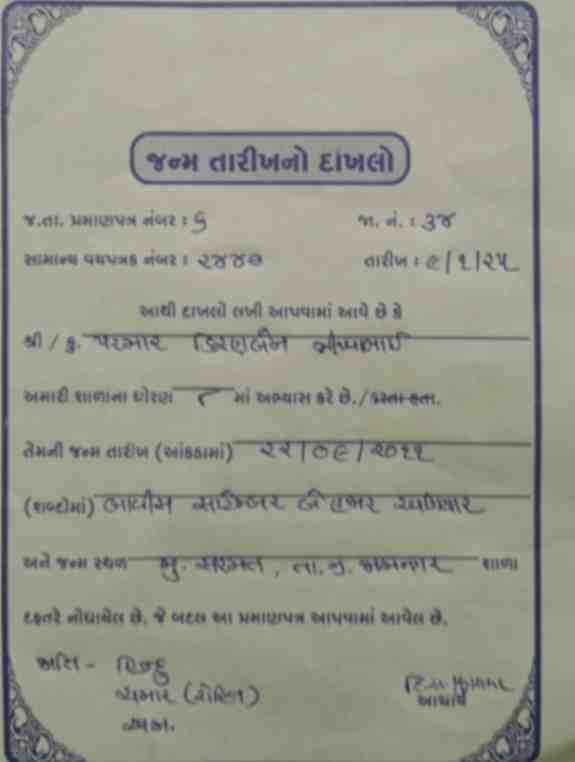 જન્મ તારીખનો દાખલો
જ.તા. પ્રમાણપત્ર નંબર : ૬ જા. નં. : ૩૪
સામાન્ય વયપત્રક નંબર : ૨૪૪૭ તારીખ : ૯/૧/૨૫
આથી દાખલો લખી આપવામાં આવે છે કે
શ્રી / કુ. પરમાર કિરણબેન
અમારી શાળાના ધોરણ ૮ માં અભ્યાસ કરે છે./કરતા હતા.
તેમની જન્મ તારીખ (આંકડામાં) ૨૨/૦૯/૨૦૧૧
(શબ્દોમાં) બાવીસ સપ્ટેમ્બર બેહજાર અગિયાર
અને જન્મ સ્થળ મુ. સરમત, તા.જી. જામનગર શાળા
દફતરે નોંધાયેલ છે. જે બદલ આ પ્રમાણપત્ર આપવામાં આવેલ છે.
જાતિ - હિન્દુ
આચાર્ય